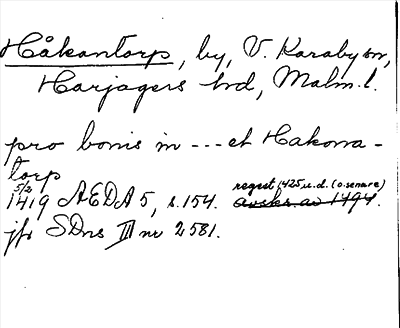 Håkantorp, by, V. Karaby sn,
Harjagers hd, Malm. l.
pro bonis in --- et Hakona-
torp
5/2 1419 ÆDA 5, s. 154. regest 1425 u.d. (o. senare) avskr. av 1494.
jfr SDns III nr 2581.